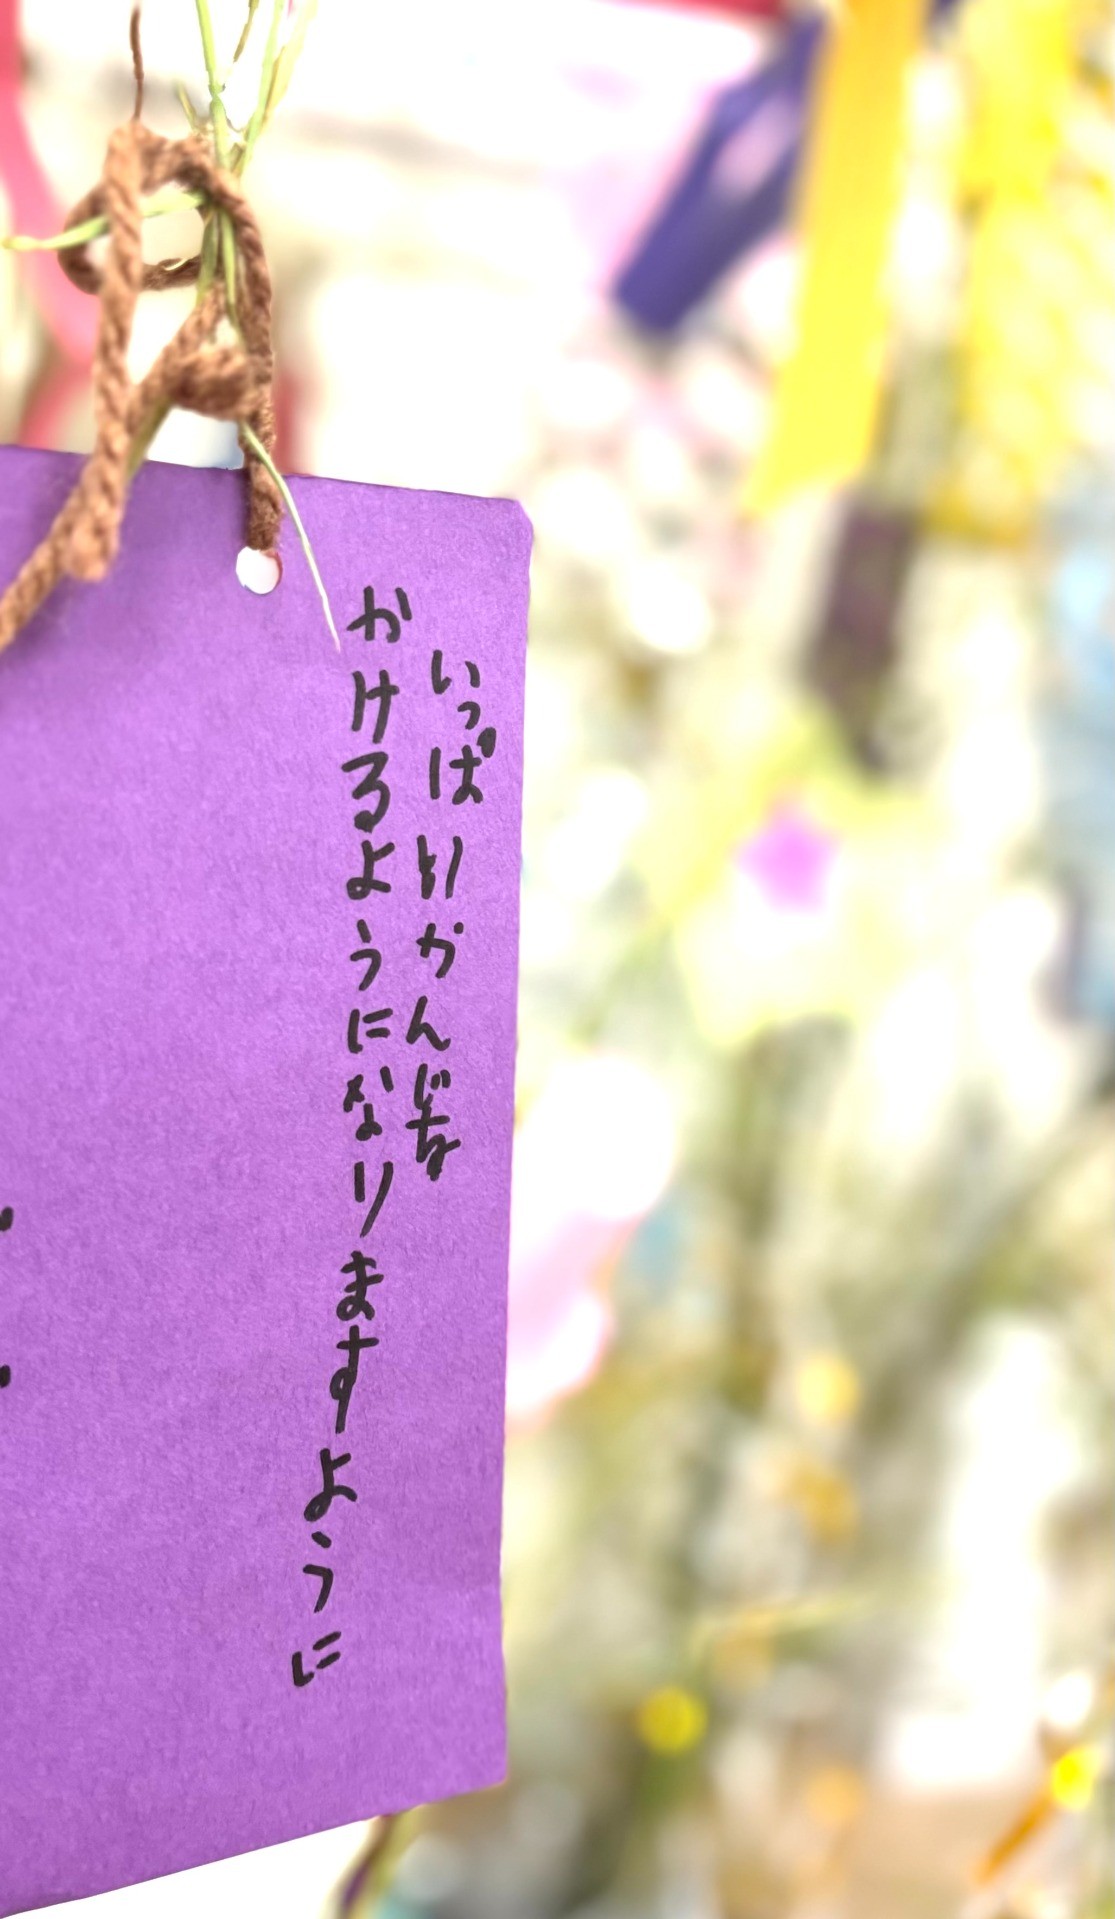 いっぱいかんじを
かけるようになりますように